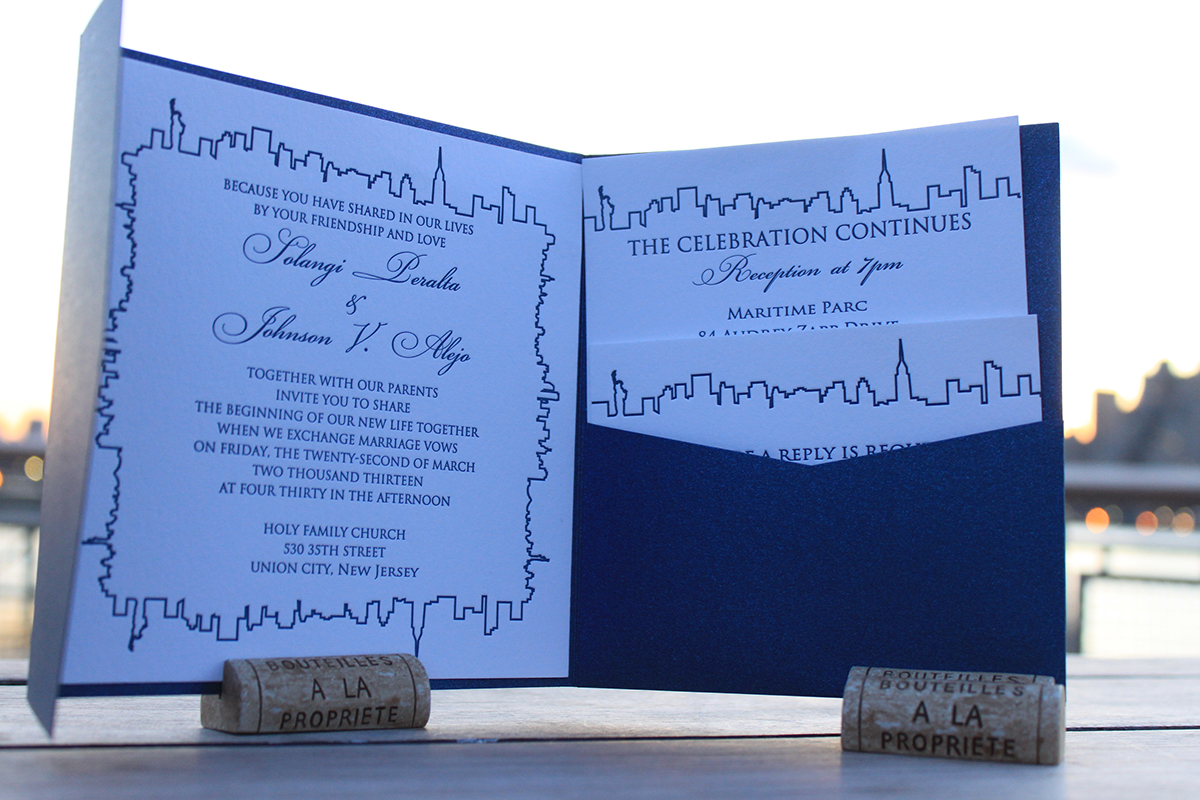 BECAUSE YOU HAVE SHARED IN OUR LIVES
BY YOUR FRIENDSHIP AND LOVE
Solangi Peralta
&
Johnson V. Alejo
TOGETHER WITH OUR PARENTS
INVITE YOU TO SHARE
THE BEGINNING OF OUR NEW LIFE TOGETHER
WHEN WE EXCHANGE MARRIAGE VOWS
ON FRIDAY, THE TWENTY-SECOND OF MARCH
TWO THOUSAND THIRTEEN
AT FOUR THIRTY IN THE AFTERNOON
HOLY FAMILY CHURCH
530 35TH STREET
UNION CITY, NEW JERSEY
THE CELEBRATION CONTINUES
Reception at 7pm
MARITIME PARC
84 AUDREY ZAPP DRIVE
A REPLY IS
BOUTEILLES
A LA
PROPRIETE
BOUTEILLES
BOUTEILLES
A LA
PROPRIETE